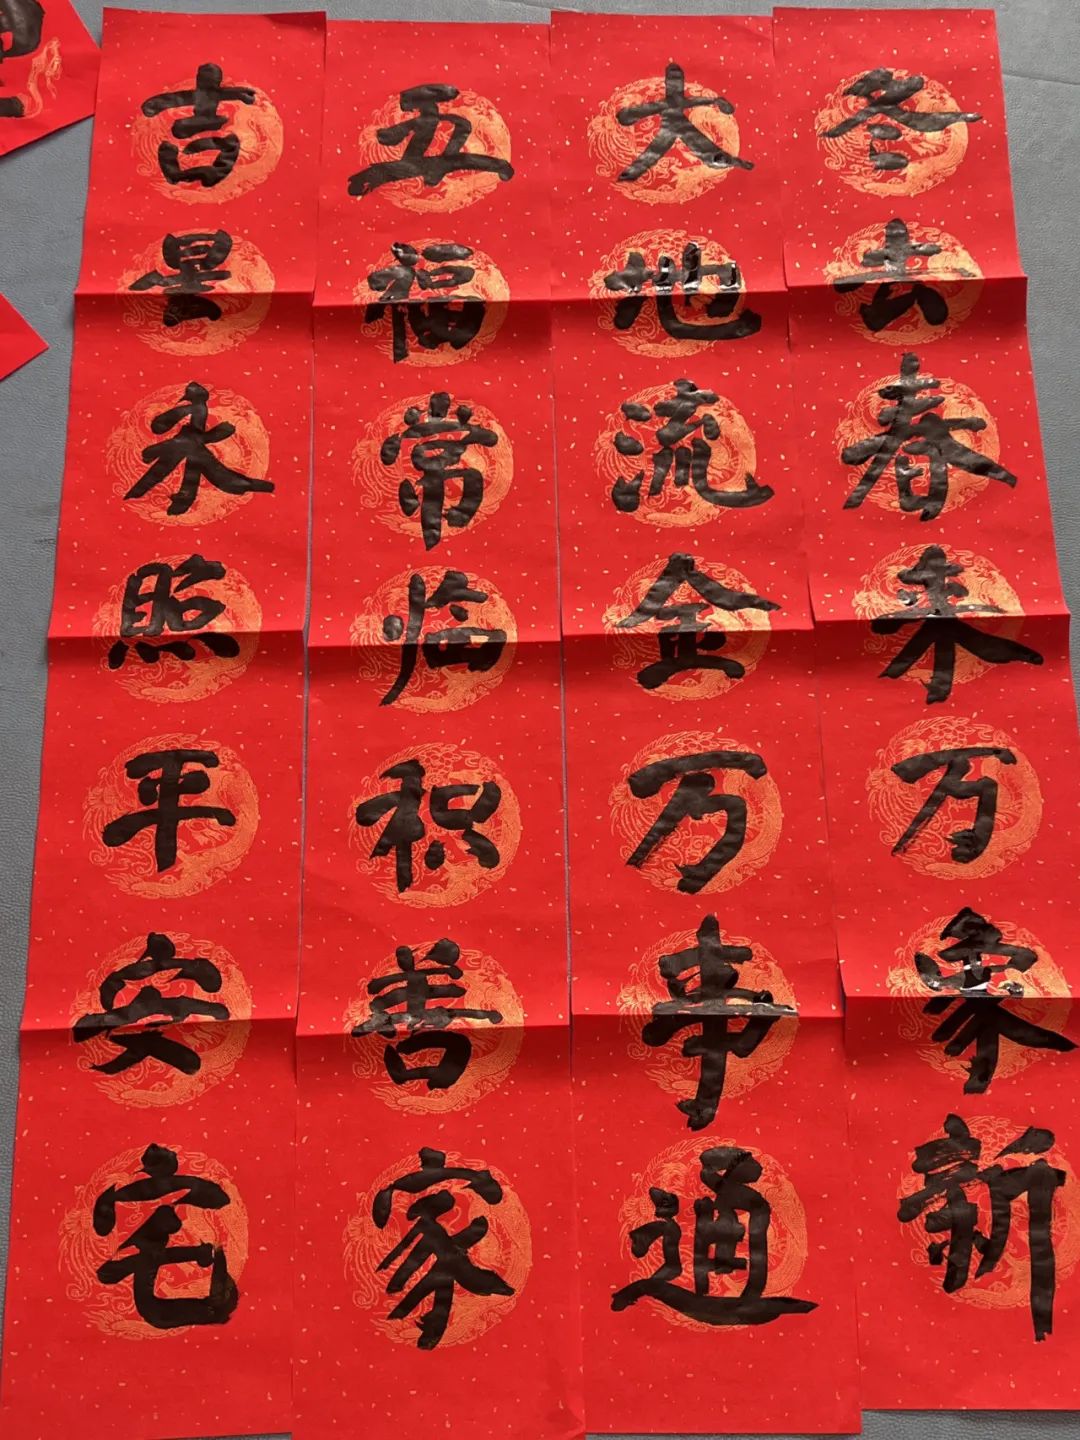 冬去春来万象新
大地流金万事通
五福常临积善家
吉星永照平安宅